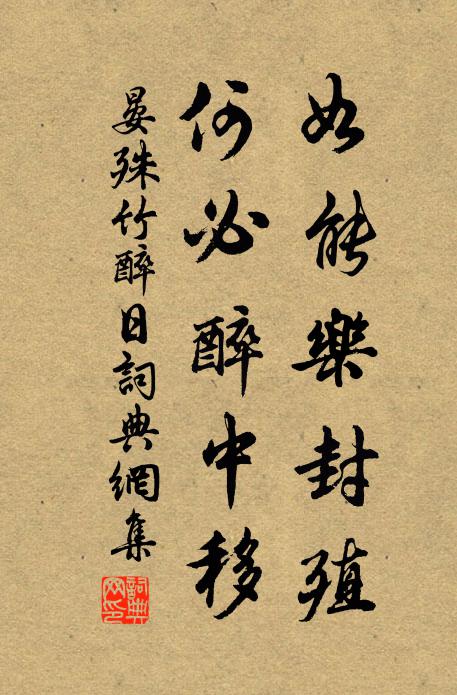 如能樂封殖
何必醉中移
晏殊竹醉日詞典網集
詞典网印